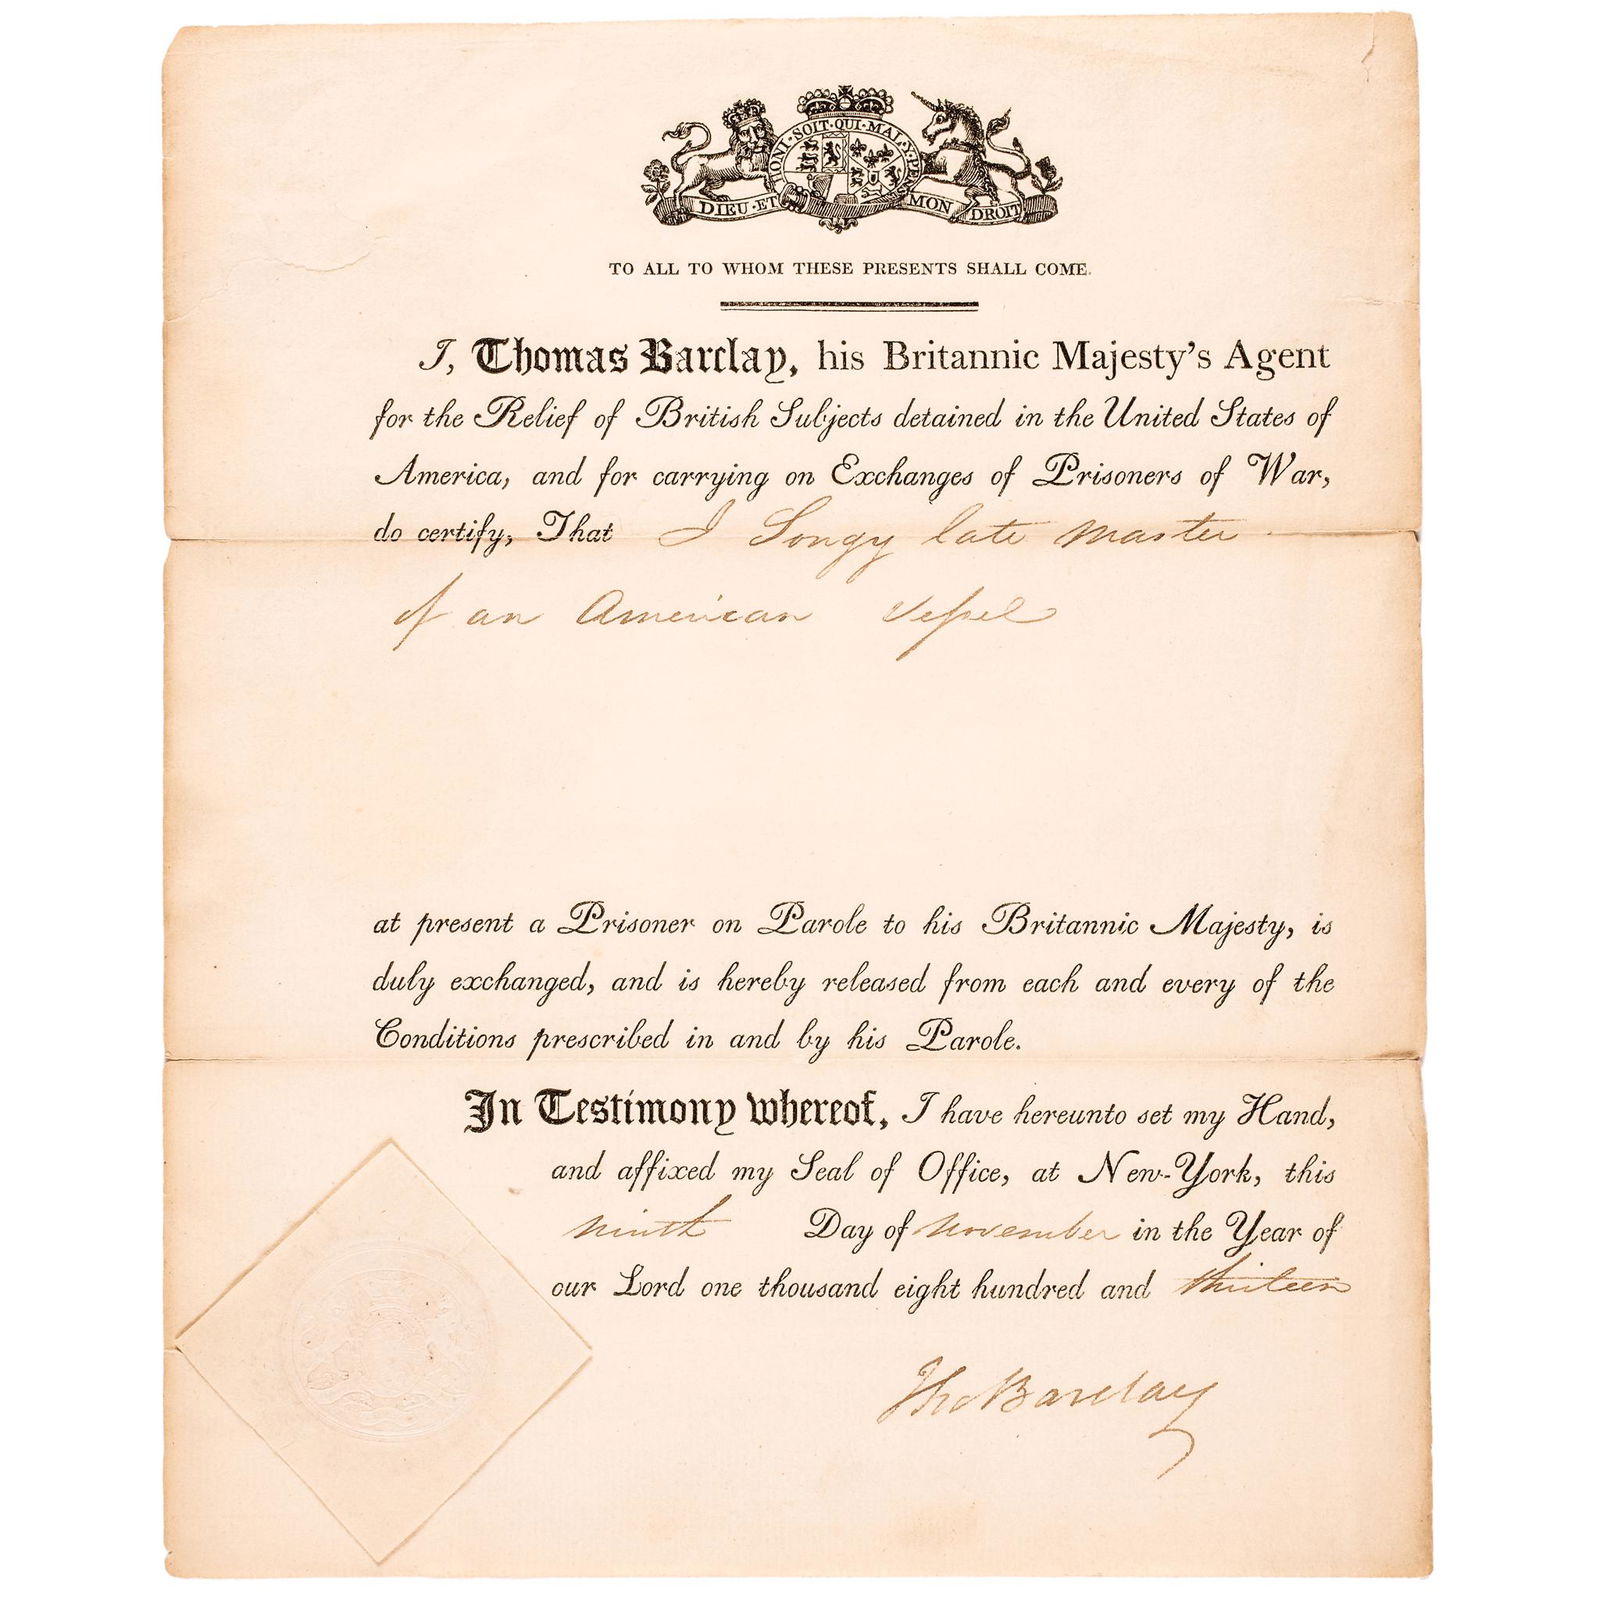 HONI·SOIT·QUI·MAL·Y·PENS
DIEU·ET MON DROIT
TO ALL TO WHOM THESE PRESENTS SHALL COME.
I, Thomas Barclay, his Britannic Majesty's Agent
for the Relief of British Subjects detained in the United States of
America, and for carrying on Exchanges of Prisoners of War,
do certify, That I Songy late master
of an American Vessel
at present a Prisoner on Parole to his Britannic Majesty, is
duly exchanged, and is hereby released from each and every of the
Conditions prescribed in and by his Parole.
In Testimony whereof, I have hereunto set my Hand,
and affixed my Seal of Office, at New-York, this
ninth Day of november in the Year of
our Lord one thousand eight hundred and thirteen
Tho Barclay